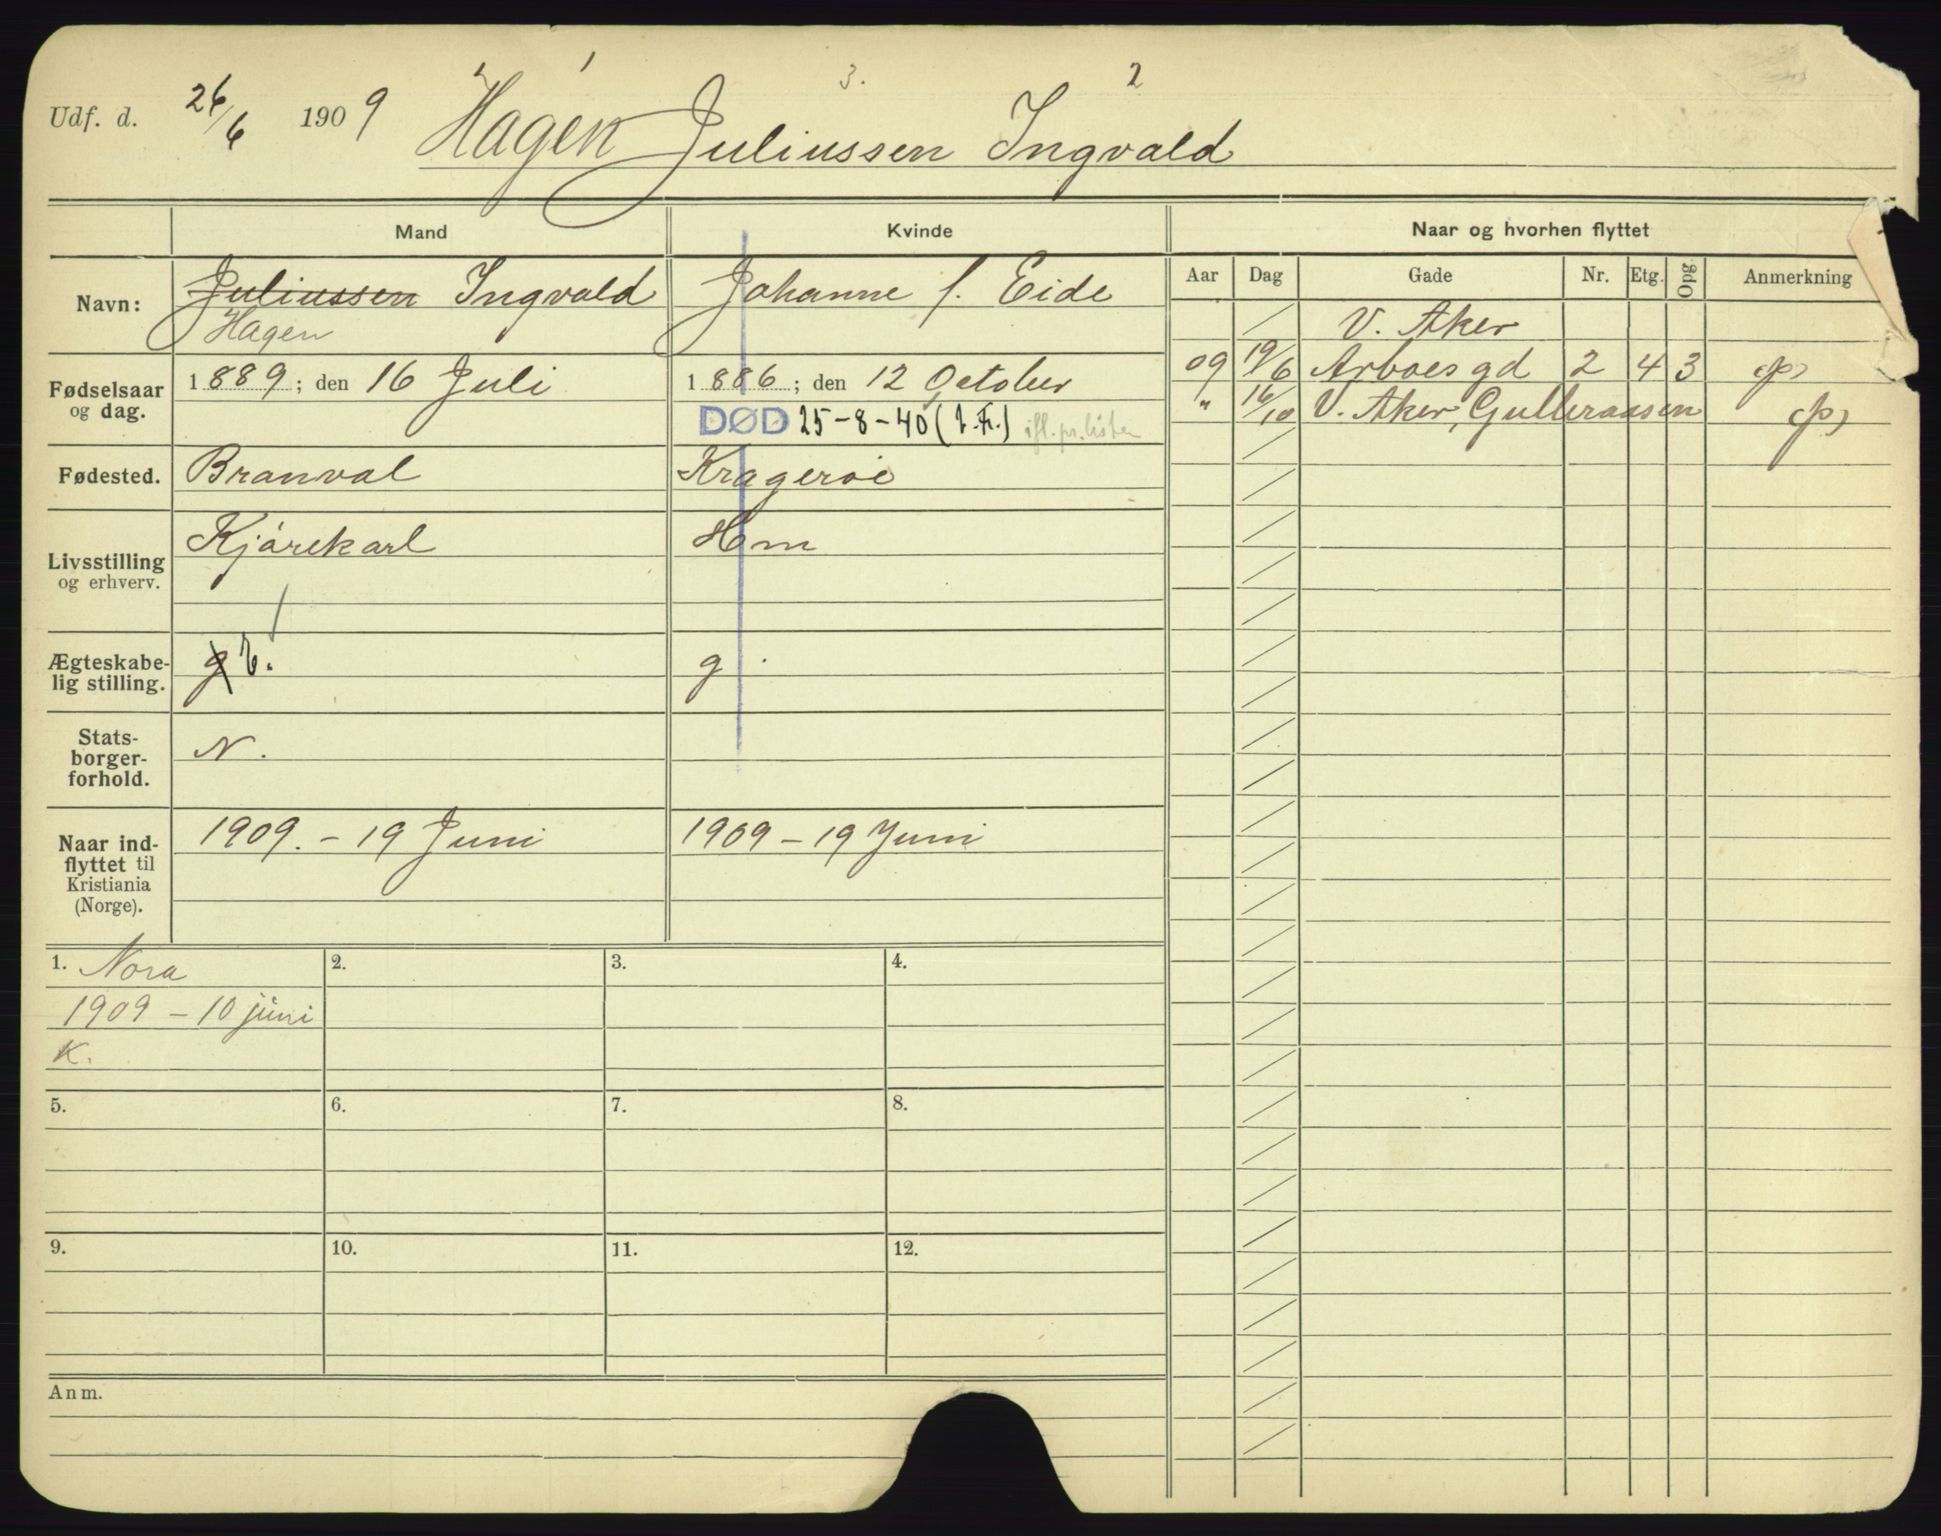 1 3. 2
Udf. d. 26/6 1909 Hagen Juliussen Ingvald
Mand Kvinde Naar og hvorhen flyttet
Navn: Juliussen Ingvald Johanne f. Eide
Hagen
Aar Dag Gade Nr. Etg. Opg Anmerkning
V. Aker
09 19/6 Arboes gd 2 4 3 (p)
" 16/10 V. Aker, Gulleraasen (p)
Fødselsaar og dag. 1889; den 16 Juli 1886; den 12 October
DØD 25-8-40 (J.F.) ifl. pr. listen
Fødested. Branval Kragerøe
Livsstilling og erhverv. Kjørekarl Hm
Ægteskabe-
lig stilling. g g.
Stats-
borger-
forhold. N.
Naar ind-
flyttet til
Kristiania
(Norge). 1909. - 19 Juni 1909 - 19 Juni
1. Nora 2. 3. 4.
1909 - 10 juni
K.
5. 6. 7. 8.
9. 10. 11. 12.
Anm.